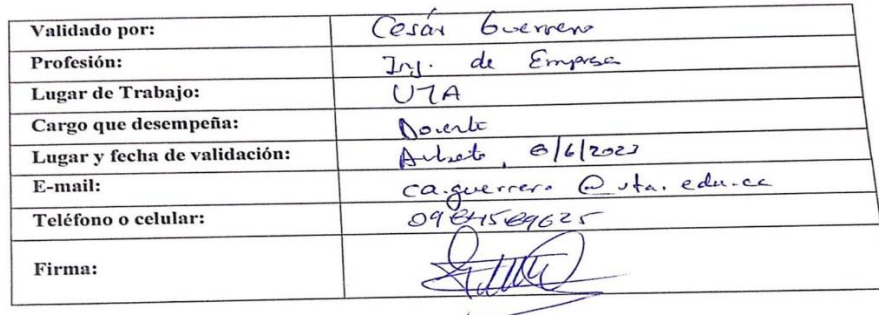 Validado por: Cesár Guerrero
Profesión: Ing. de Empresa
Lugar de Trabajo: UTA
Cargo que desempeña: Docente
Lugar y fecha de validación: 6/6/2023
E-mail: ca.guerrero@uta.edu.ec
Teléfono o celular:
Firma: